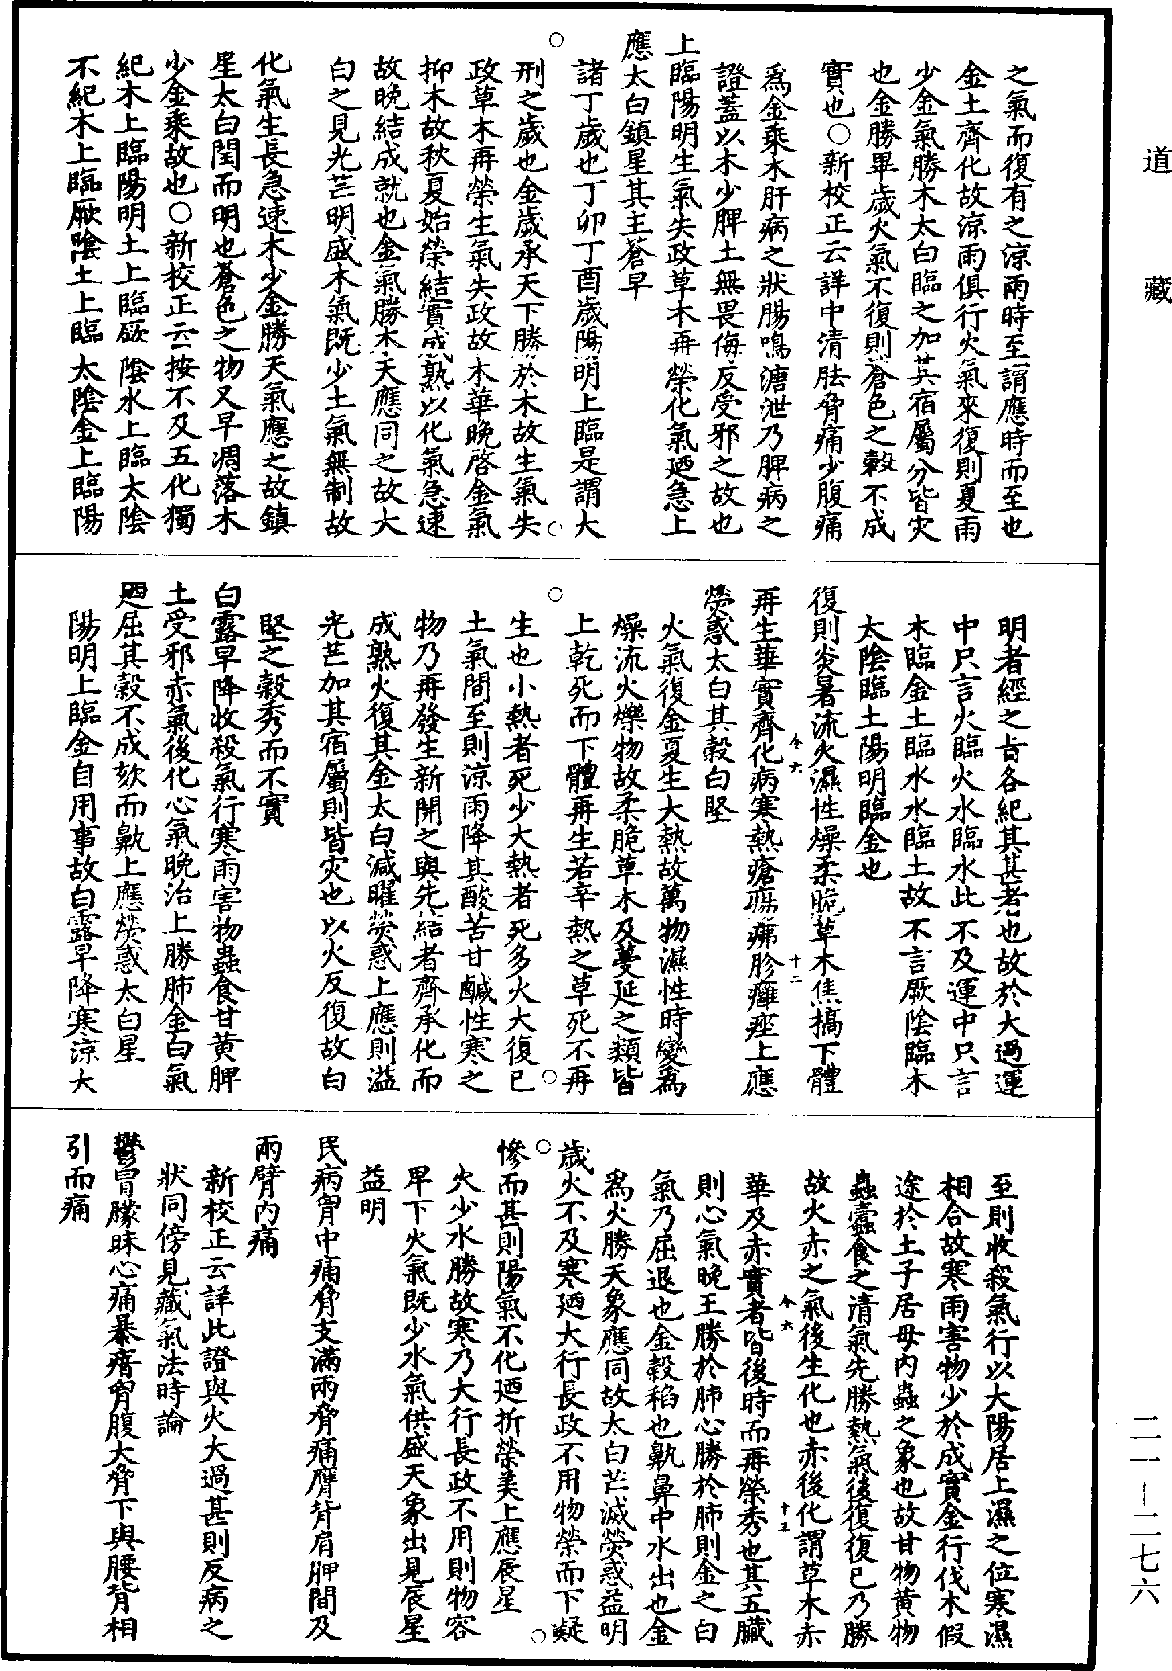 道藏
之氣而復有之涼雨時至謂應時而至也
金土齊化故涼雨俱行火氣來復則夏雨
少金氣勝木太白臨之加其宿屬分皆灾
也金勝畢歲火氣不復則蒼色之穀不成
實也○新校正云詳中清胠脅痛少腹痛
爲金乘木肝病之狀腸鳴溏泄乃脾病之
證蓋以木少脾土無畏侮反受邪之故也
上臨陽明生氣失政草木再榮化氣廼急上
應太白鎮星其主蒼早
諸丁歲也丁卯丁酉歲陽明上臨是謂天
刑之歲也金歲承天下勝於木故生氣失
政草木再榮生氣失政故木華晚啓金氣
抑木故秋夏始榮結實成熟以化氣急速
故晚結成就也金氣勝木天應同之故太
白之見光芒明盛木氣既少土氣無制故
化氣生長急速木少金勝天氣應之故鎮
星太白閏而明也蒼色之物又早凋落木
少金乘故也○新校正云按不及五化獨
紀木上臨陽明土上臨厥陰水上臨太陰
不紀木上臨厥陰土上臨太陰金上臨陽
明者經之旨各紀其甚者也故於大過運
中只言火臨火水臨水此不及運中只言
木臨金土臨水水臨土故不言厥陰臨木
太陰臨土陽明臨金也
復則炎暑流火濕性燥柔脆草木焦槁下體
再生華實齊化病寒熱瘡瘍疿胗癰痤上應
熒惑太白其穀白堅
火氣復金夏生大熱故萬物濕性時變爲
燥流火爍物故柔脆草木及蔓延之類皆
上乾死而下體再生若辛熱之草死不再
生也小熱者死少大熱者死多火大復已
土氣間至則涼雨降其酸苦甘鹹性寒之
物乃再發生新開之與先結者齊承化而
成熟火復其金太白減曜熒惑上應則溢
光芒加其宿屬則皆灾也以火反復故白
堅之穀秀而不實
白露早降收殺氣行寒雨害物蟲食甘黃脾
土受邪赤氣後化心氣晚治上勝肺金白氣
廼屈其穀不成欬而鼽上應熒惑太白星
陽明上臨金自用事故白露早降寒涼大
至則收殺氣行以太陽居上濕之位寒濕
相合故寒雨害物少於成實金行伐木假
途於土子居母內蟲之象也故甘物黃物
蟲蠹食之清氣先勝熱氣後復復已乃勝
故火赤之氣後生化也赤後化謂草木赤
華及赤實者皆後時而再榮秀也其五臟
則心氣晚王勝於肺心勝於肺則金之白
氣乃屈退也金穀稻也鼽鼻中水出也金
爲火勝天象應同故太白芒減熒惑益明
歲火不及寒廼大行長政不用物榮而下凝
慘而甚則陽氣不化廼折榮美上應辰星
火少水勝故寒乃大行長政不用則物容
卑下火氣既少水氣供盛天象出見辰星
益明
民病胷中痛脅支滿兩脅痛膺背肩胛間及
兩臂內痛
新校正云詳此證與火大過甚則反病之
狀同傍見藏氣法時論
鬱冒朦昧心痛暴瘖胷腹大脅下與腰背相
引而痛
二一—二七六